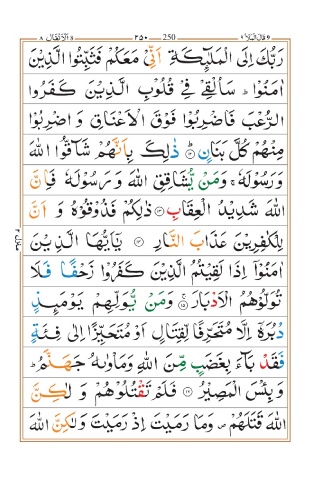 الانفال ٨ ٢٥٠ 250 قال الملا ٩
رَبُّكَ اِلَى الْمَلٰٓئِكَةِ اَنِّيْ مَعَكُمْ فَثَبِّتُوا الَّذِيْنَ
اٰمَنُوْا ؕ سَاُلْقِيْ فِيْ قُلُوْبِ الَّذِيْنَ كَفَرُوا
الرُّعْبَ فَاضْرِبُوْا فَوْقَ الْاَعْنَاقِ وَ اضْرِبُوْا
مِنْهُمْ كُلَّ بَنَانٍ ؕ﴿۱۲﴾ ذٰلِكَ بِاَنَّهُمْ شَآقُّوا اللّٰهَ
وَرَسُوْلَهٗ ۚ وَمَنْ يُّشَاقِقِ اللّٰهَ وَ رَسُوْلَهٗ فَاِنَّ
اللّٰهَ شَدِيْدُ الْعِقَابِ ﴿۱۳﴾ ذٰلِكُمْ فَذُوْقُوْهُ وَ اَنَّ
لِلْكٰفِرِيْنَ عَذَابَ النَّارِ ﴿۱۴﴾ يٰۤاَيُّهَا الَّذِيْنَ
اٰمَنُوْۤا اِذَا لَقِيْتُمُ الَّذِيْنَ كَفَرُوْا زَحْفًا فَلَا
تُوَلُّوْهُمُ الْاَدْبَارَ ۚ﴿۱۵﴾ وَمَنْ يُّوَلِّهِمْ يَوْمَىِٕذٍ
دُبُرَهٗۤ اِلَّا مُتَحَرِّفًا لِّقِتَالٍ اَوْ مُتَحَيِّزًا اِلٰى فِئَةٍ
فَقَدْ بَآءَ بِغَضَبٍ مِّنَ اللّٰهِ وَ مَاْوٰىهُ جَهَنَّمُ ؕ
وَ بِئْسَ الْمَصِيْرُ ﴿۱۶﴾ فَلَمْ تَقْتُلُوْهُمْ وَ لٰكِنَّ
اللّٰهَ قَتَلَهُمْ ۪ وَمَا رَمَيْتَ اِذْ رَمَيْتَ وَ لٰكِنَّ اللّٰهَ